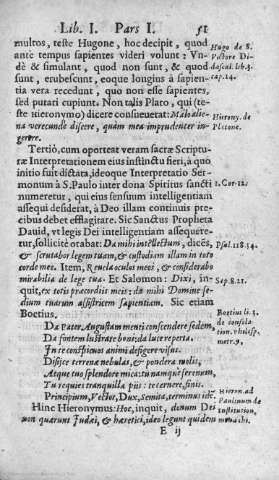 Lib. I. Pars I. 51
multos, teste Hugone, hoc decipit, quod
ante tempus sapientes videri volunt: Vn-
dè & simulant, quod non sunt, & quod
sunt, erubescunt, eoque longiùs à sapien-
tia vera recedunt, quo non esse sapientes,
sed putari cupiunt. Non talis Plato, qui (te-
ste Hieronymo) dicere consueuerat: Malo alie-
na verecundè discere, quàm mea imprudenter in-
gerere.
Tertiò, cum oporteat veram sacræ Scriptu-
ræ Interpretationem eius instinctu fieri, à quo
initio suit dictata, ideoque Interpretatio Ser-
monum à S. Paulo inter dona Spiritus sancti
numeretur, qui eius sensium intelligentiam
assequi desiderat, à Deo illam continuis pre-
cibus debet efflagitare. Sic Sanctus Propheta
Dauid, vt legis Dei intelligentiam assequere-
tur, sollicitè orabat: Da mihi intellectum, dicēs,
& scrutabor legem tuam, & custodiam illam in toto
corde meo. Item, Reuela oculos meos, & considerabo
mirabilia de lege tua. Et Salomon: Dixi, in-
quit, ex totis præcordiis meis: da mihi Domine se-
dium tuarum assistricem sapientiam. Sic etiam
Boetius.
Da Pater, Augustam menti conscendere sedem,
Da fontem lustrare boni; da luce reperta.
In te conspicuos animi desigere visus.
Disijce terrenæ nebulas, & pondera molis,
Atque tuo splendore mica: tu namque serenum,
Tu requies tranquilla piis: te cernere, finis.
Principium, Vector, Dux, Semita, terminus idē.
Hinc Hieronymus: Hoc, inquit, donum Dei
non quærunt Judæi, & hæretici, ideo legunt quidem
E ij
Hugo de S.
Victore Di-
dascal. lib. 3.
cap. 14.
Hierony. de
Platone.
1. Cor. 12.
Psal. 118. 34.
Sap. 8. 21.
Boetius li. 3.
de consola-
tion. philosop.
metr. 9.
Hieron. ad
Paulinum de
Institution.
monachi.